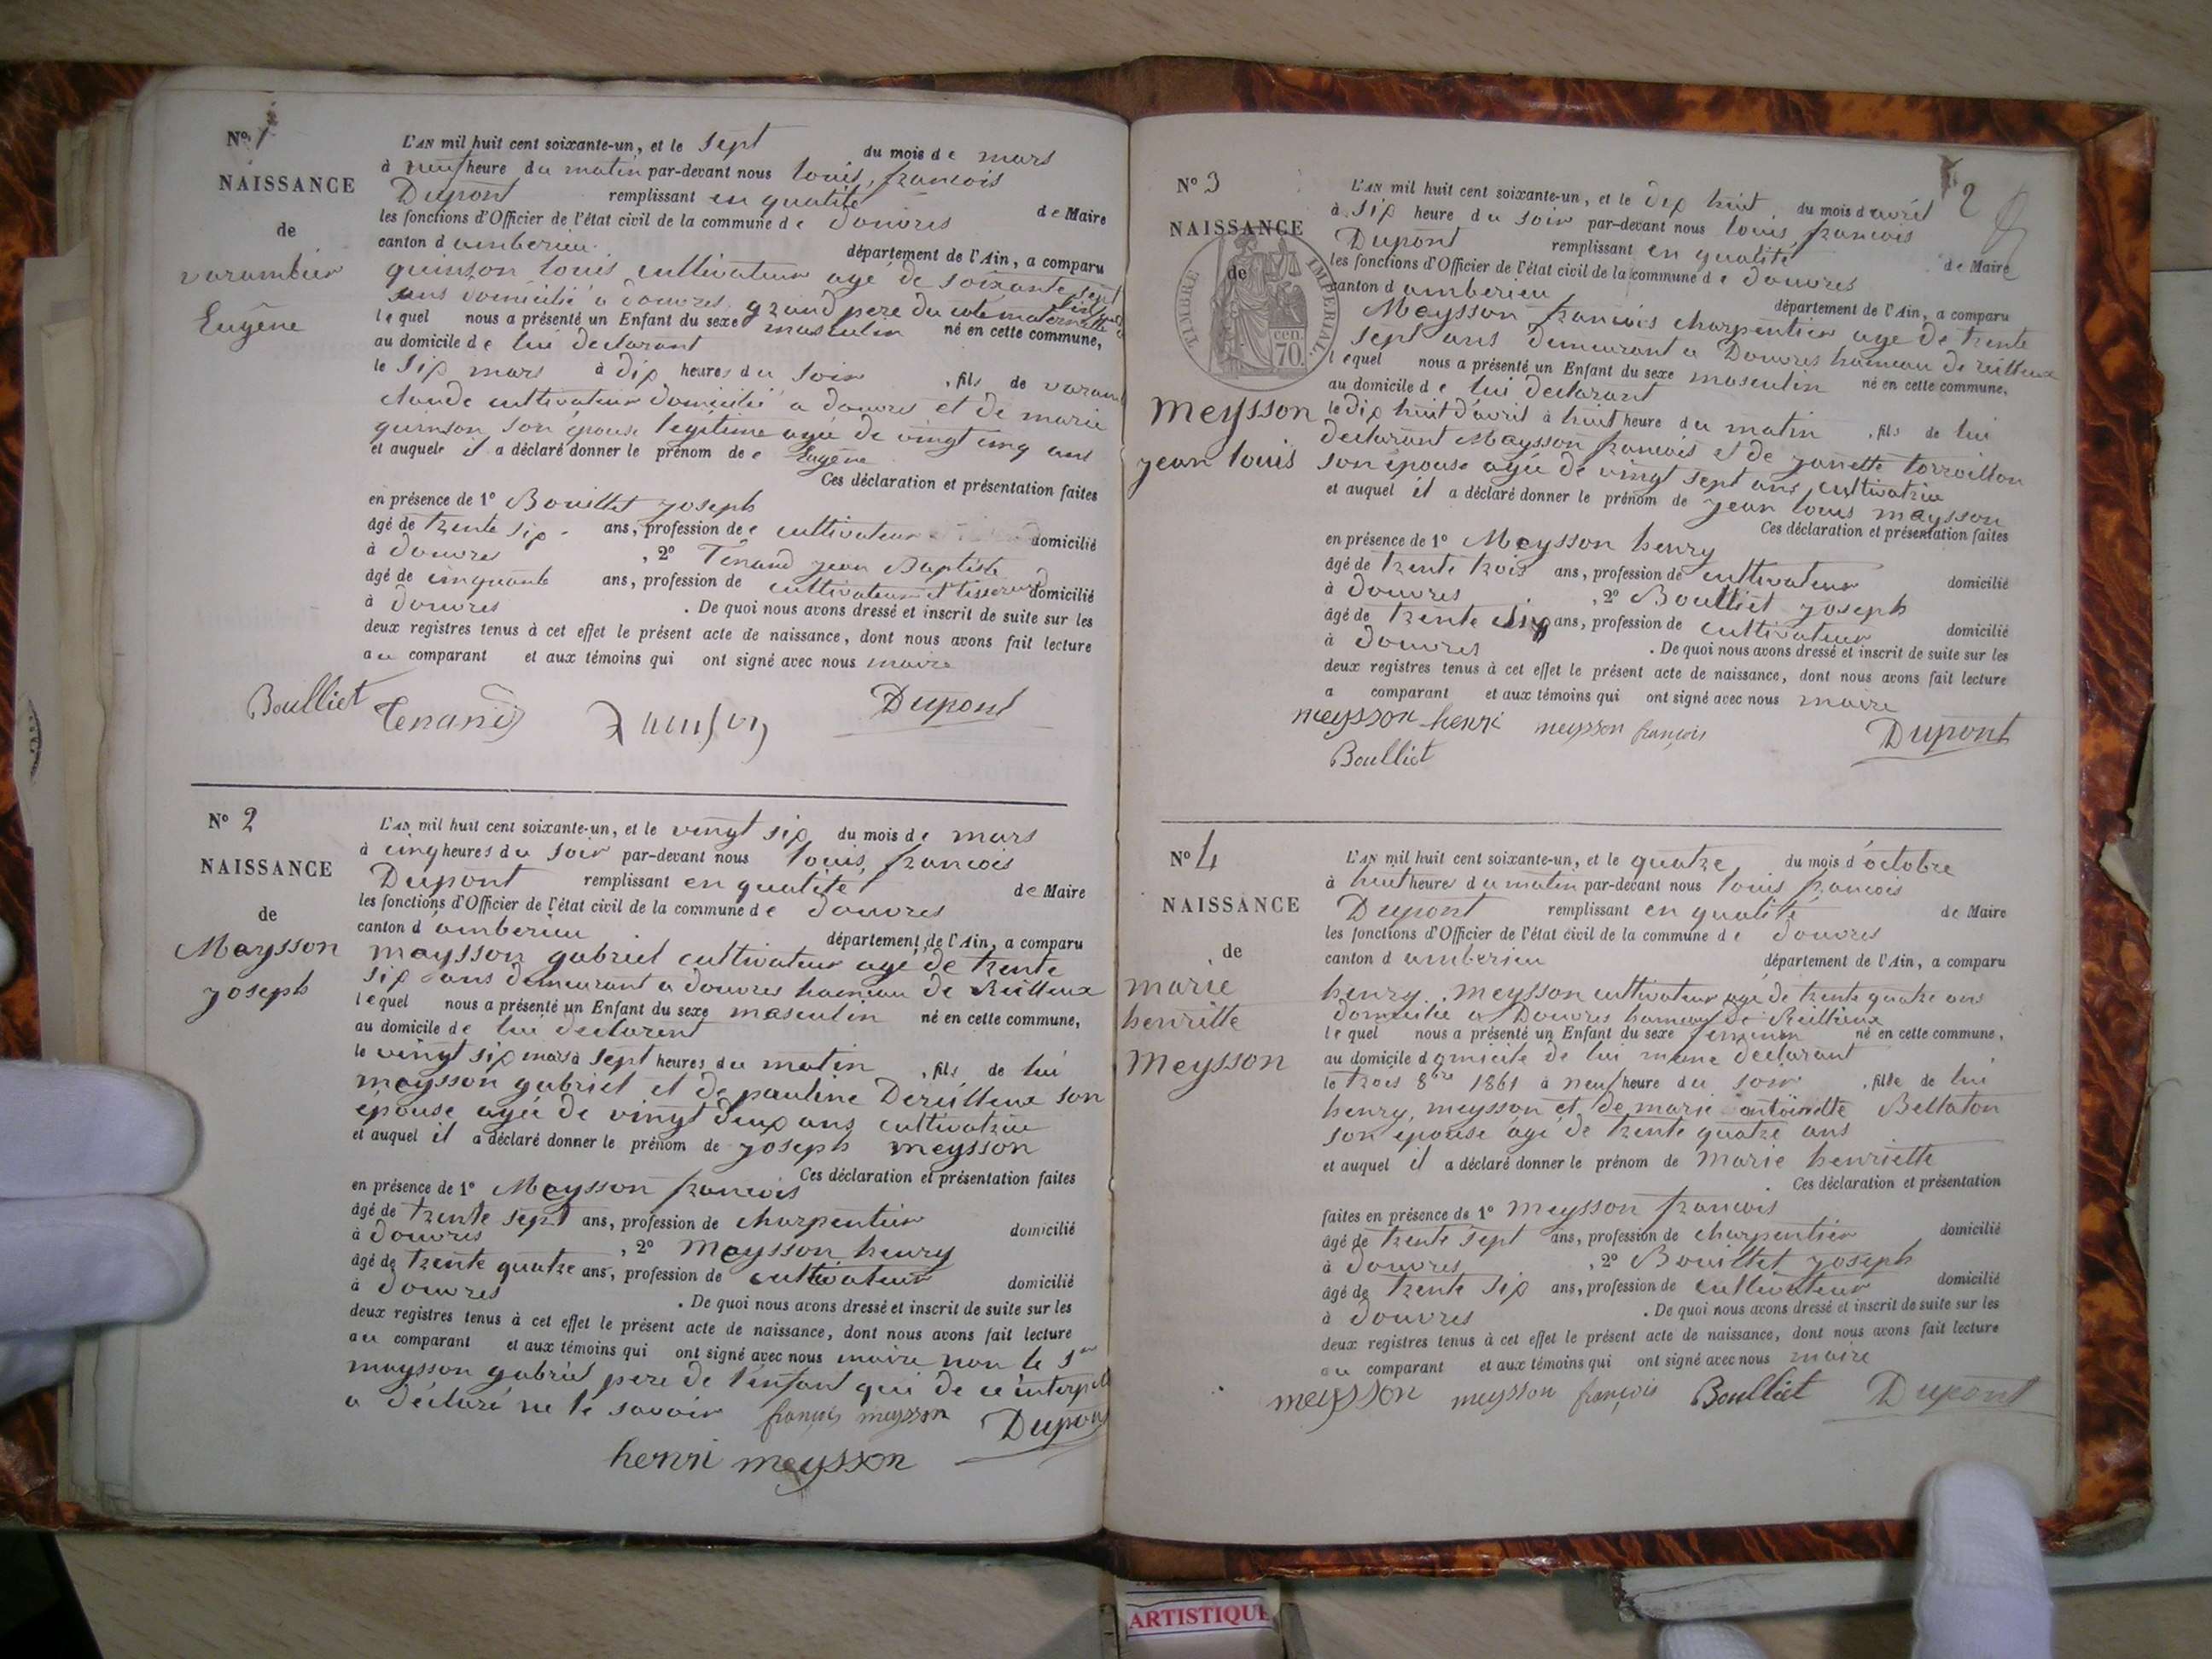 Nº 1
NAISSANCE
de
varambier
Eugène
L'AN mil huit cent soixante-un, et le sept du mois de mars
à neuf heure du matin par-devant nous louis, francois
Dupont remplissant en qualité de Maire
les fonctions d'Officier de l'état civil de la commune de douvres
canton d amberieu département de l'Ain, a comparu
quinson louis cultivateur agé de soixante sept
ans domicilié a douvres, grand pere du coté maternelle
lequel nous a présenté un Enfant du sexe masculin né en cette commune,
au domicile de lui declarant
le six mars à dix heures du soir , fils de varam
claude cultivateur domicilié a douvres et de marie
quinson son épouse legitime agée de vingt cinq ans
et auquele il a déclaré donner le prénom de e Eugène
Ces déclaration et présentation faites
en présence de 1º Bouillet joseph
âgé de trente six ans, profession de e cultivateur domicilié
à douvres , 2º Tenand jean Baptiste
âgé de cinquante ans, profession de cultivateur et tisserand domicilié
à douvres . De quoi nous avons dressé et inscrit de suite sur les
deux registres tenus à cet effet le présent acte de naissance, dont nous avons fait lecture
au comparant et aux témoins qui ont signé avec nous maire
Boulliet Tenand Dupont
Nº 2
NAISSANCE
de
Meysson
joseph
L'AN mil huit cent soixante-un, et le vingt six du mois de mars
à cinq heures du soir par-devant nous louis, francois
Dupont remplissant en qualité de Maire
les fonctions d'Officier de l'état civil de la commune de douvres
canton d'amberieu département de l'Ain, a comparu
meysson gabriel cultivateur agé de trente
six ans demeurant a douvres hameau de Reilleux
lequel nous a présenté un Enfant du sexe masculin né en cette commune,
au domicile de lui declarent
le vingt six mars à sept heures du matin , fils de lui
meysson gabriel et de pauline Dereilleux son
épouse agée de vingt deux ans cultivatrice
et auquel il a déclaré donner le prénom de joseph meysson
Ces déclaration et présentation faites
en présence de 1º Meysson francois
âgé de trente sept ans, profession de charpentier domicilié
à douvres , 2º Meysson henry
âgé de trente quatre ans, profession de cultivateur domicilié
à douvres . De quoi nous avons dressé et inscrit de suite sur les
deux registres tenus à cet effet le présent acte de naissance, dont nous avons fait lecture
au comparant et aux témoins qui ont signé avec nous maire non le Sr
meysson gabriel pere de l'enfant qui de ce interpellé
a déclaré ne le savoir françois meysson Dupont
henri meysson
2
Nº 3
NAISSANCE
de
TIMBRE IMPERIAL
cen. 70.
meysson
jean louis
L'AN mil huit cent soixante-un, et le dix huit du mois d'avril
à six heure du soir par-devant nous louis, francois
Dupont remplissant en qualité de Maire
les fonctions d'Officier de l'état civil de la commune de douvres
canton d amberieu département de l'Ain, a comparu
Meysson francois charpentier age de trente
sept ans demeurant a Douvres hameau de reilleux
lequel nous a présenté un Enfant du sexe masculin né en cette commune,
au domicile de lui declarant
le dix huit d'avril à huit heure du matin , fils de lui
declarant Meysson francois et de janette torroillon
son épouse agée de vingt sept ans, cultivatrice
et auquel il a déclaré donner le prénom de jean louis meysson
Ces déclaration et présentation faites
en présence de 1º Meysson henry
âgé de trente trois ans, profession de cultivateur domicilié
à douvres , 2º Boulliet joseph
âgé de trente six ans, profession de cultivateur domicilié
à douvres . De quoi nous avons dressé et inscrit de suite sur les
deux registres tenus à cet effet le présent acte de naissance, dont nous avons fait lecture
a comparant et aux témoins qui ont signé avec nous maire
meysson henri meysson françois Dupont
Boulliet
Nº 4
NAISSANCE
de
marie
henriette
Meysson
L'AN mil huit cent soixante-un, et le quatre du mois d'octobre
à huit heures du matin par-devant nous louis, francois
Dupont remplissant en qualité de Maire
les fonctions d'Officier de l'état civil de la commune de douvres
canton d amberieu département de l'Ain, a comparu
henry meysson cultivateur age de trente quatre ans
domicilié a Douvres hameau de Reillieux
lequel nous a présenté un Enfant du sexe feminin né en cette commune,
au domicile d omicile de lui meme declarant
le trois 8bre 1861 à neuf heure du soir , fille de lui
henry, meysson et de marie antoinette Bellaton
son épouse agé de trente quatre ans
et auquel il a déclaré donner le prénom de Marie henriette
Ces déclaration et présentation
faites en présence de 1º Meysson francois
âgé de trente sept ans, profession de charpentier domicilié
à douvres , 2º Bouillet joseph
âgé de trente six ans, profession de cultivateur domicilié
à douvres . De quoi nous avons dressé et inscrit de suite sur les
deux registres tenus à cet effet le présent acte de naissance, dont nous avons fait lecture
au comparant et aux témoins qui ont signé avec nous maire
meysson meysson françois Boulliet Dupont
ARTISTIQUE